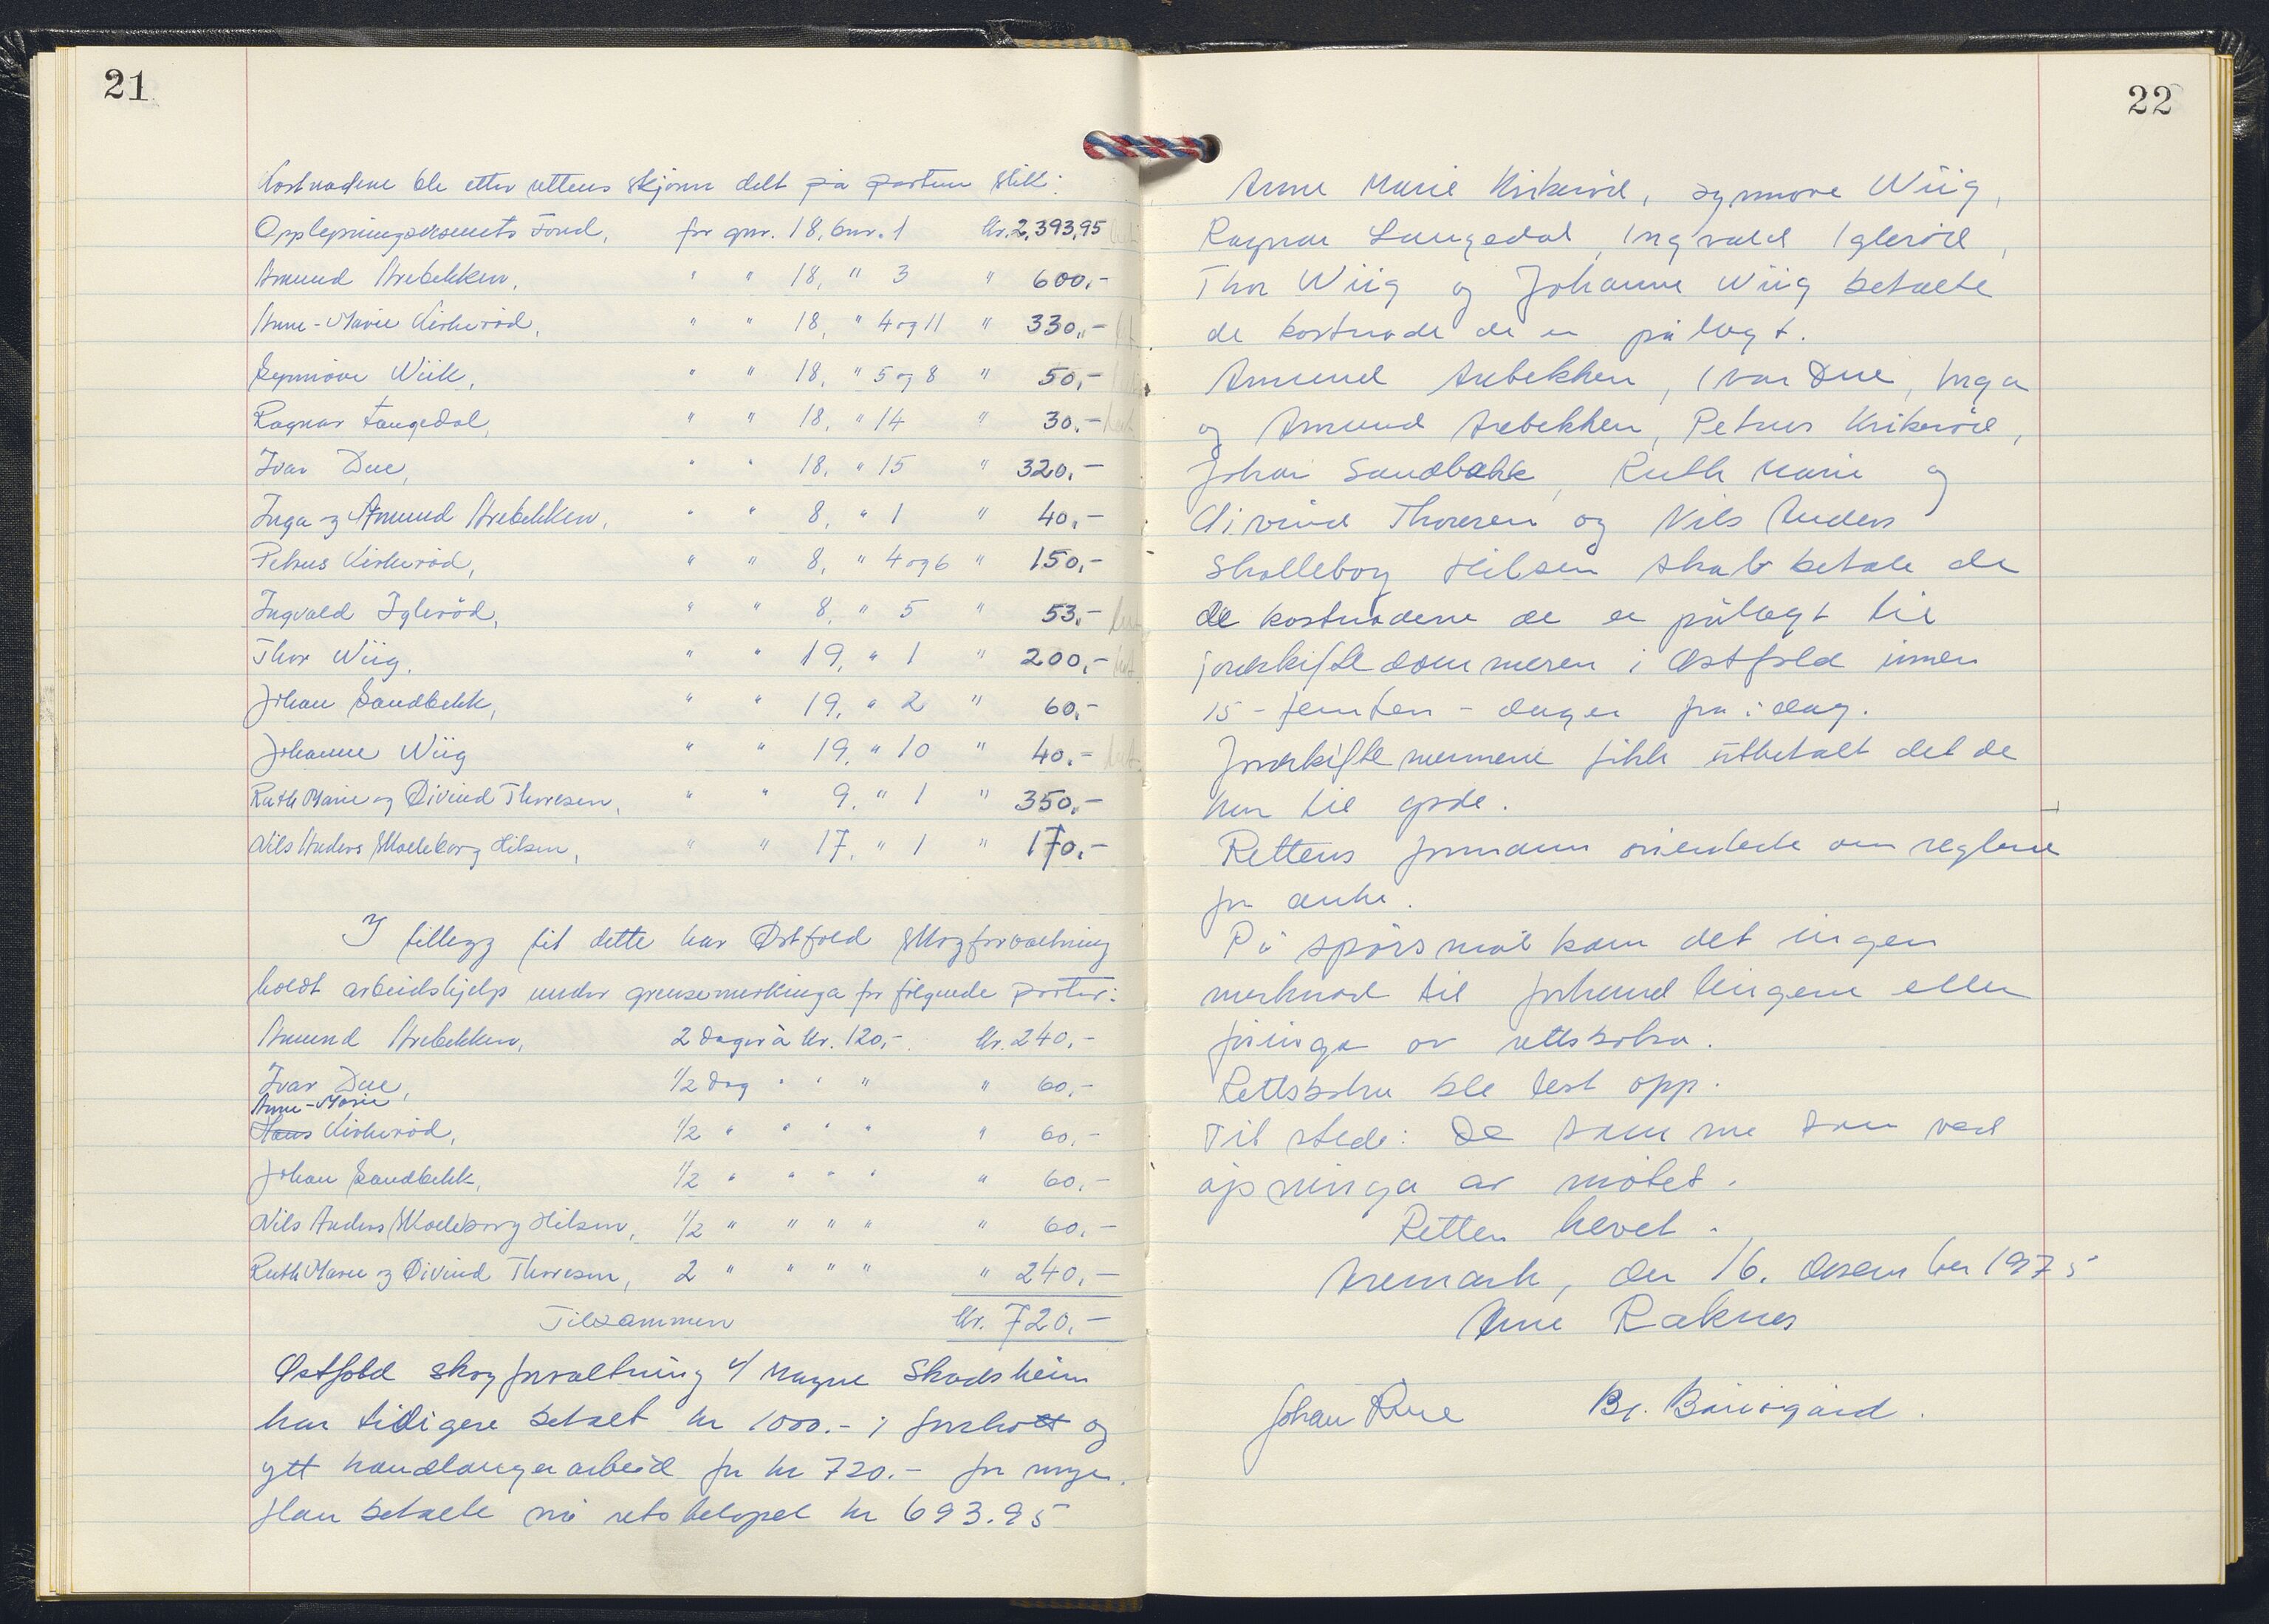 21
Kostnadene ble etter rettens skjønn delt på partene slik:
Opplysningsvesenets Fond, for gnr. 18, bnr. 1 kr. 2,393,95
Amund Arebekken, " " 18, " 3 " 600,-
Anne-Marie Kirkerød, " " 18, " 4 og 11 " 330,-
Synnöve Wiik, " " 18, " 5 og 8 " 50,-
Ragnar Langedal, " " 18, " 14 " 30,-
Ivar Due, " " 18, " 15 " 320,-
Inga og Amund Arebekken, " " 8, " 1 " 40,-
Petrus Kirkeröd, " " 8, " 4 og 6 " 150,-
Ingvald Igleröd, " " 8, " 5 " 53,-
Thor Wiig, " " 19, " 1 " 200,-
Johan Sandbekk, " " 19, " 2 " 60,-
Johanne Wiig " " 19, " 10 " 40,-
Ruth Marie og Øivind Thoresen, " " 9, " 1 " 350,-
Nils Anders Skolleborg Hilsen, " " 17, " 1 " 170,-
I tillegg til dette har Østfold skogforvaltning
holdt arbeidshjelp under grensemerkinga for følgende parter:
Amund Arebekken, 2 dager à kr. 120,- kr. 240,-
Ivar Due, 1/2 dag " " " " 60,-
Anne-Marie
Hans Kirkeröd, 1/2 " " " " " 60,-
Johan Sandbekk, 1/2 " " " " " 60,-
Nils Anders Skolleborg Hilsen, 1/2 " " " " " 60,-
Ruth Marie og Øivind Thoresen, 2 " " " " " 240,-
Tilsammen kr. 720,-
Østfold skogforvaltning v/ Magne Skodsheim
har tidigere betalt kr 1000.- i forskott og
ytt handlangerarbeid for kr 720.- for
Han betalte nå restbeløpet kr 693.95
22
Anne Marie Kirkerød, Synnøve Wiig,
Ragnar Langedal, Ingvald Iglerød,
Thor Wiig og Johanne Wiig betalte
de kostnade de er pålagt.
Amund Arebekken, Ivar Due, Inga
og Amund Arebekken, Petrus Kirkerød,
Johan Sandbækk, Ruth Marie og
Øivind Thoresen og Nils Anders
Skolleborg Hilsen skal betale de
de kostnadene de er pålagt til
jordskiftedommeren i Østfold innen
15 - femten - dager fra i dag.
Jordskiftemennene fikk utbetalt det de
har til gode.
Rettens formann orienterte om reglene
for anke.
På spørsmål kom det ingen
merknad til forhandlingene eller
føringa av rettsboka.
Rettsboka ble lest opp.
Til stede: De samme som ved
åpninga av møtet.
Retten hevet.
Aremark, den 16. desember 1975
Arne Raknes
Johan Rue